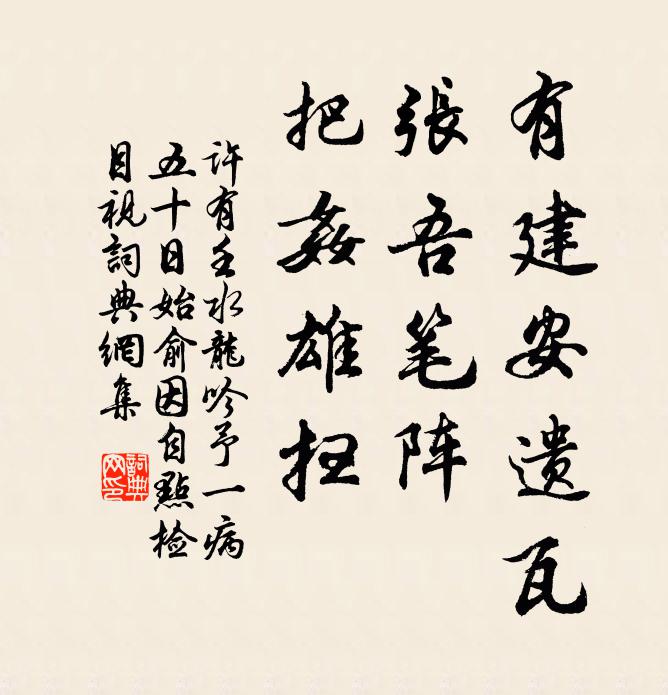 有建安遗瓦
張吾笔阵
把姦雄扫
许有壬水龍吟予一病
五十日始俞因自點检
目视詞典網集
詞典网印